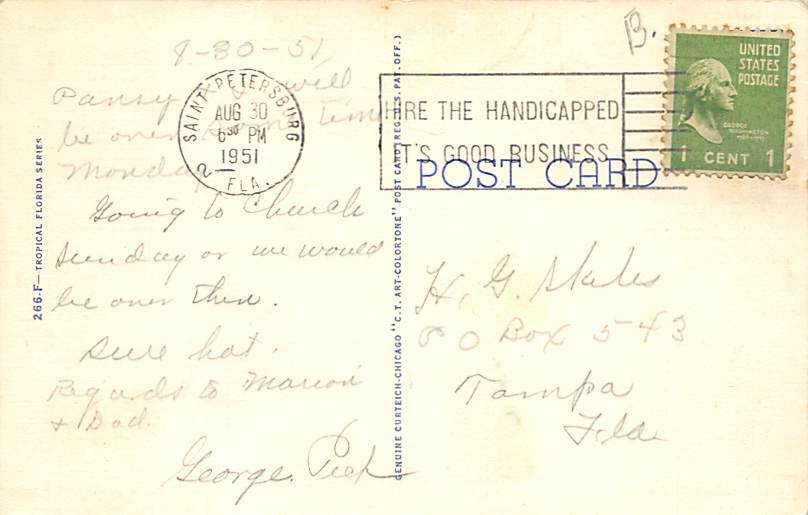 8-30-51
Pansy & I will
be over some time
Monday
Going to Church
Sunday or we would
be over then.
Sure hot.
Regards to Marion
& Dad.
George.
266-F—TROPICAL FLORIDA SERIES
SAINT PETERSBURG
AUG 30
6 30 PM
1951
2
FLA.
GENUINE CURTEICH-CHICAGO "C.T. ART-COLORTONE" POST CARD (REG. U.S. PAT. OFF.)
HIRE THE HANDICAPPED
IT'S GOOD BUSINESS
POST CARD
B.
UNITED
STATES
POSTAGE
GEORGE
WASHINGTON
1 CENT 1
H. G.
P O Box 543
Tampa
Fla